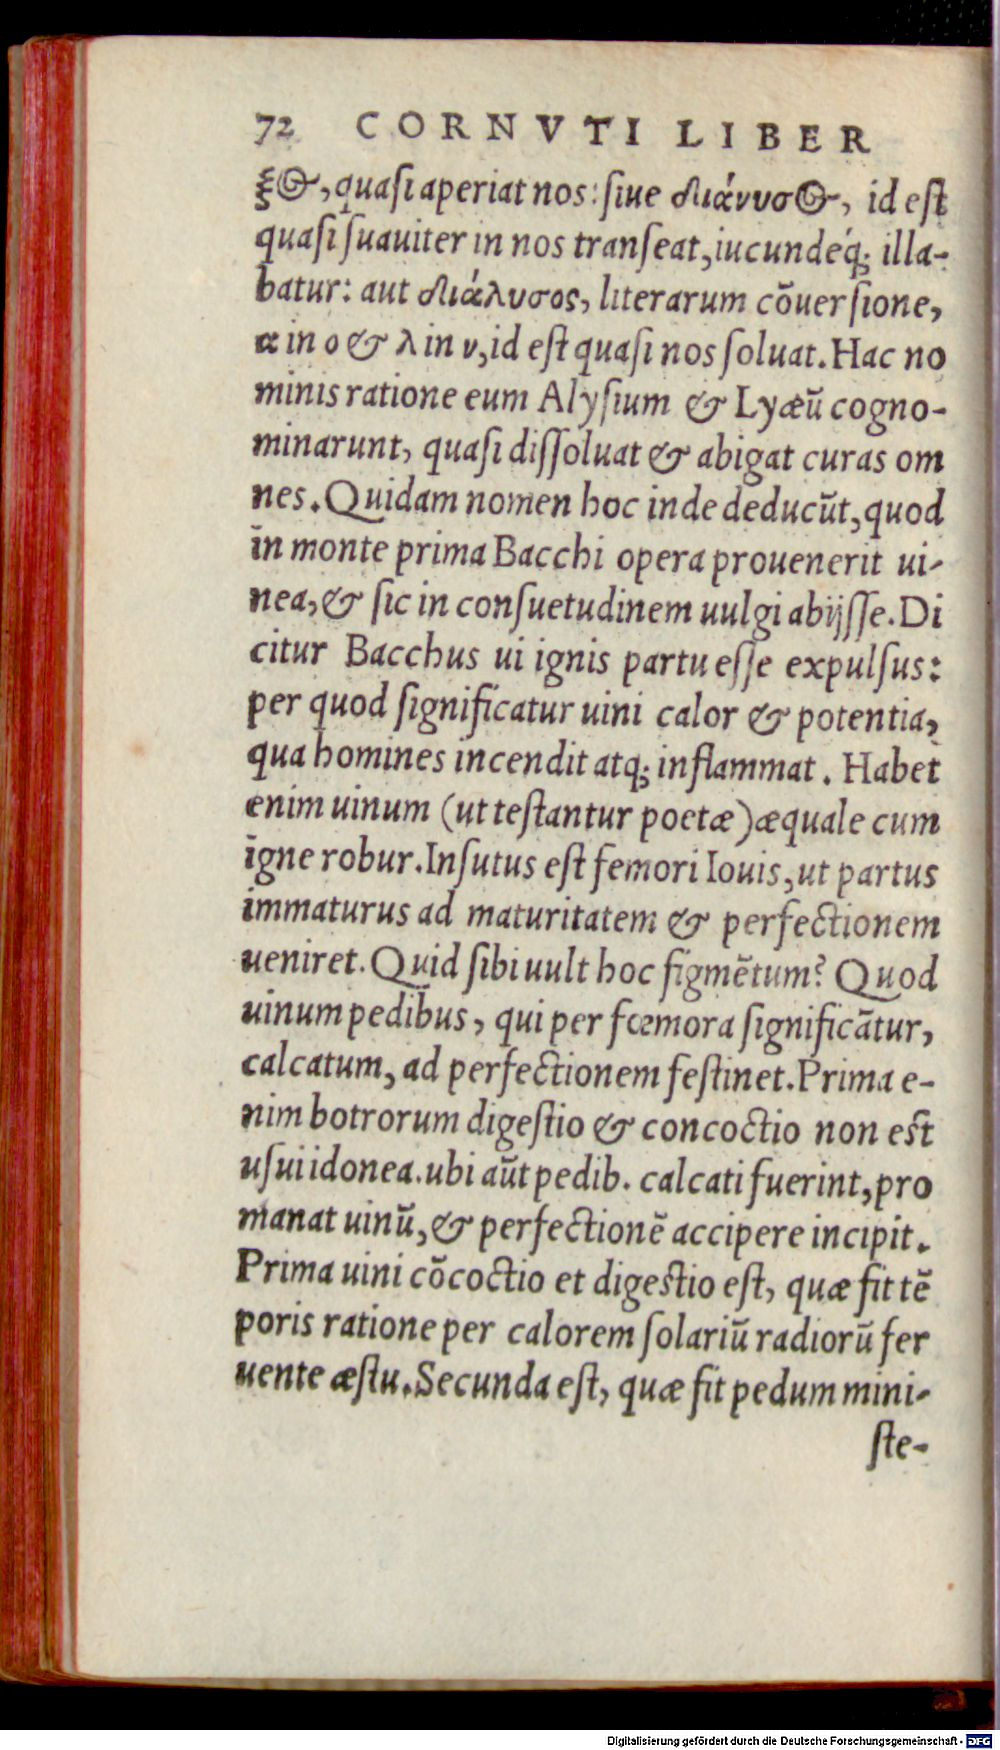 72 CORNVTI LIBER
ξος, quaſi aperiat nos: ſiue διάνυσος, id eſt
quaſi ſuauiter in nos tranſeat, iucundeq́; illa-
batur: aut διάλυσος, literarum cōuerſione,
α in ο & λ in ν, id eſt quaſi nos ſoluat. Hac no
minis ratione eum Alyſium & Lyæū cogno-
minarunt, quaſi diſſoluat & abigat curas om
nes. Quidam nomen hoc inde deducūt, quod
in monte prima Bacchi opera prouenerit ui-
nea, & ſic in conſuetudinem uulgi abijſſe. Di
citur Bacchus ui ignis partu eſſe expulſus:
per quod ſignificatur uini calor & potentia,
qua homines incendit atq; inflammat. Habet
enim uinum (ut teſtantur poetæ) æquale cum
igne robur. Inſutus eſt femori Iouis, ut partus
immaturus ad maturitatem & perfectionem
ueniret. Quid ſibi uult hoc figmētum? Quod
uinum pedibus, qui per fœmora ſignificātur,
calcatum, ad perfectionem feſtinet. Prima e-
nim botrorum digeſtio & concoctio non eſt
uſui idonea. ubi aūt pedib. calcati fuerint, pro
manat uinū, & perfectionē accipere incipit.
Prima uini cōcoctio et digeſtio eſt, quæ fit tē
poris ratione per calorem ſolariū radiorū fer
uente æſtu. Secunda eſt, quæ fit pedum mini-
ſte-
Digitalisierung gefördert durch die Deutsche Forschungsgemeinschaft - DFG